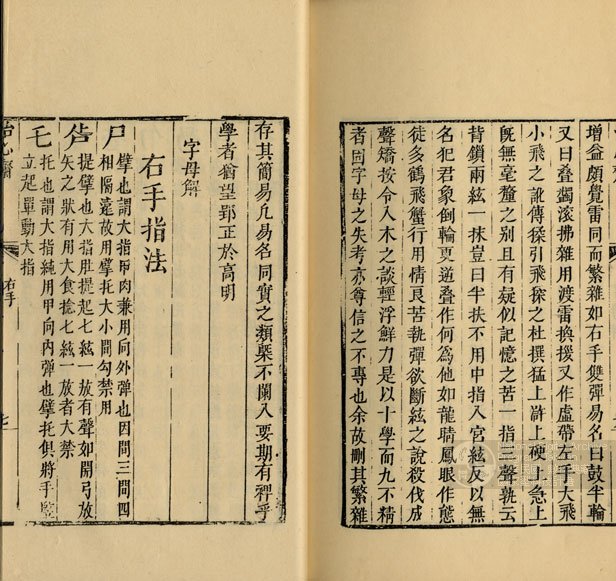 增益頗覺雷同而繁雜如右手雙彈易名曰鼓半輪
又曰叠蠲滾拂雜用渡雷換援又作虛帶左手大飛
小飛之訛傳猱引飛猱之杜撰猛上滸上硬上急上
旣無毫釐之别且有疑似記憶之苦一指三聲孰云
背鎖兩絃一抹豈曰半扶不用中指入宮絃反以無
名犯君象倒輪更逓叠作何爲他如龍睛鳳眼作態
徒多鶴飛蟹行用情良苦執彈欲斷絃之說殺伐成
聲矯按令入木之談輕浮鮮力是以十學而九不精
者固字母之失考亦尊信之不專也余故刪其繁雜
存其簡易凡易名同實之類槩不闌入要期有裨乎
學者猶望郢正於高明
字母解
右手指法
尸 擘也謂大指甲肉兼用向外彈也因間三間四
相隔遠故用擘托大小間勾禁用
提擘也大指肚提起七絃一放有聲如開弓放
矢之狀有用大食捻七絃一放者大禁
乇 托也謂大指純用甲向內彈也擘托俱將手豎
立起單動大指
右手